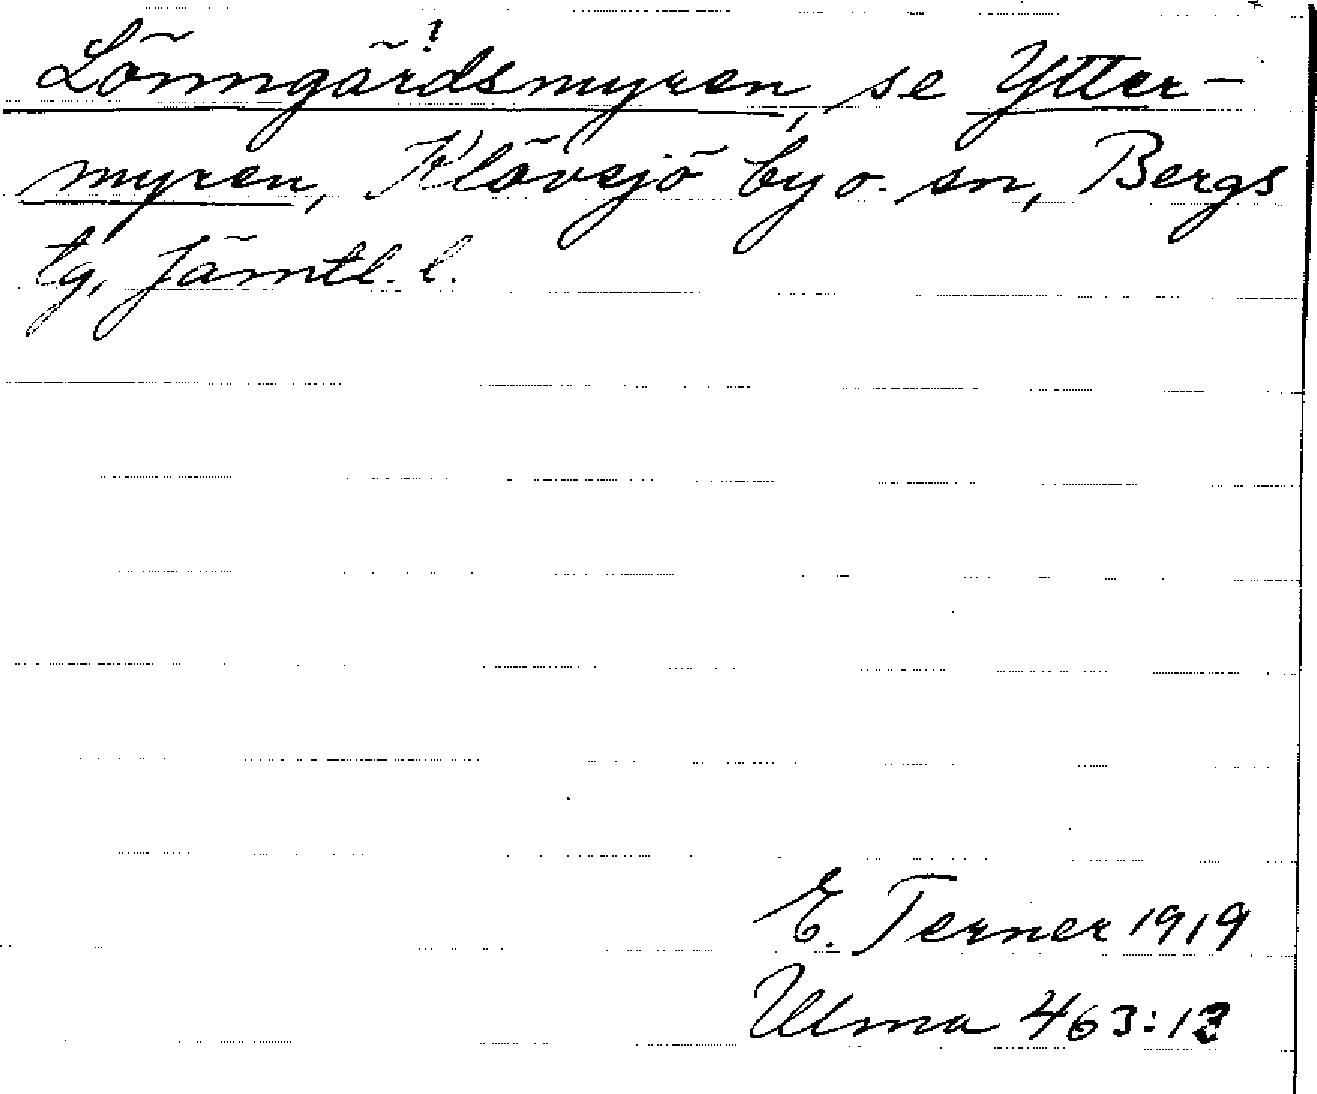 Lönngärdsmyren, se Ytter-
myren, Klövsjö by o. sn, Bergs
tg, Jämtl. l.
E. Terner 1919
Ulma 463:12